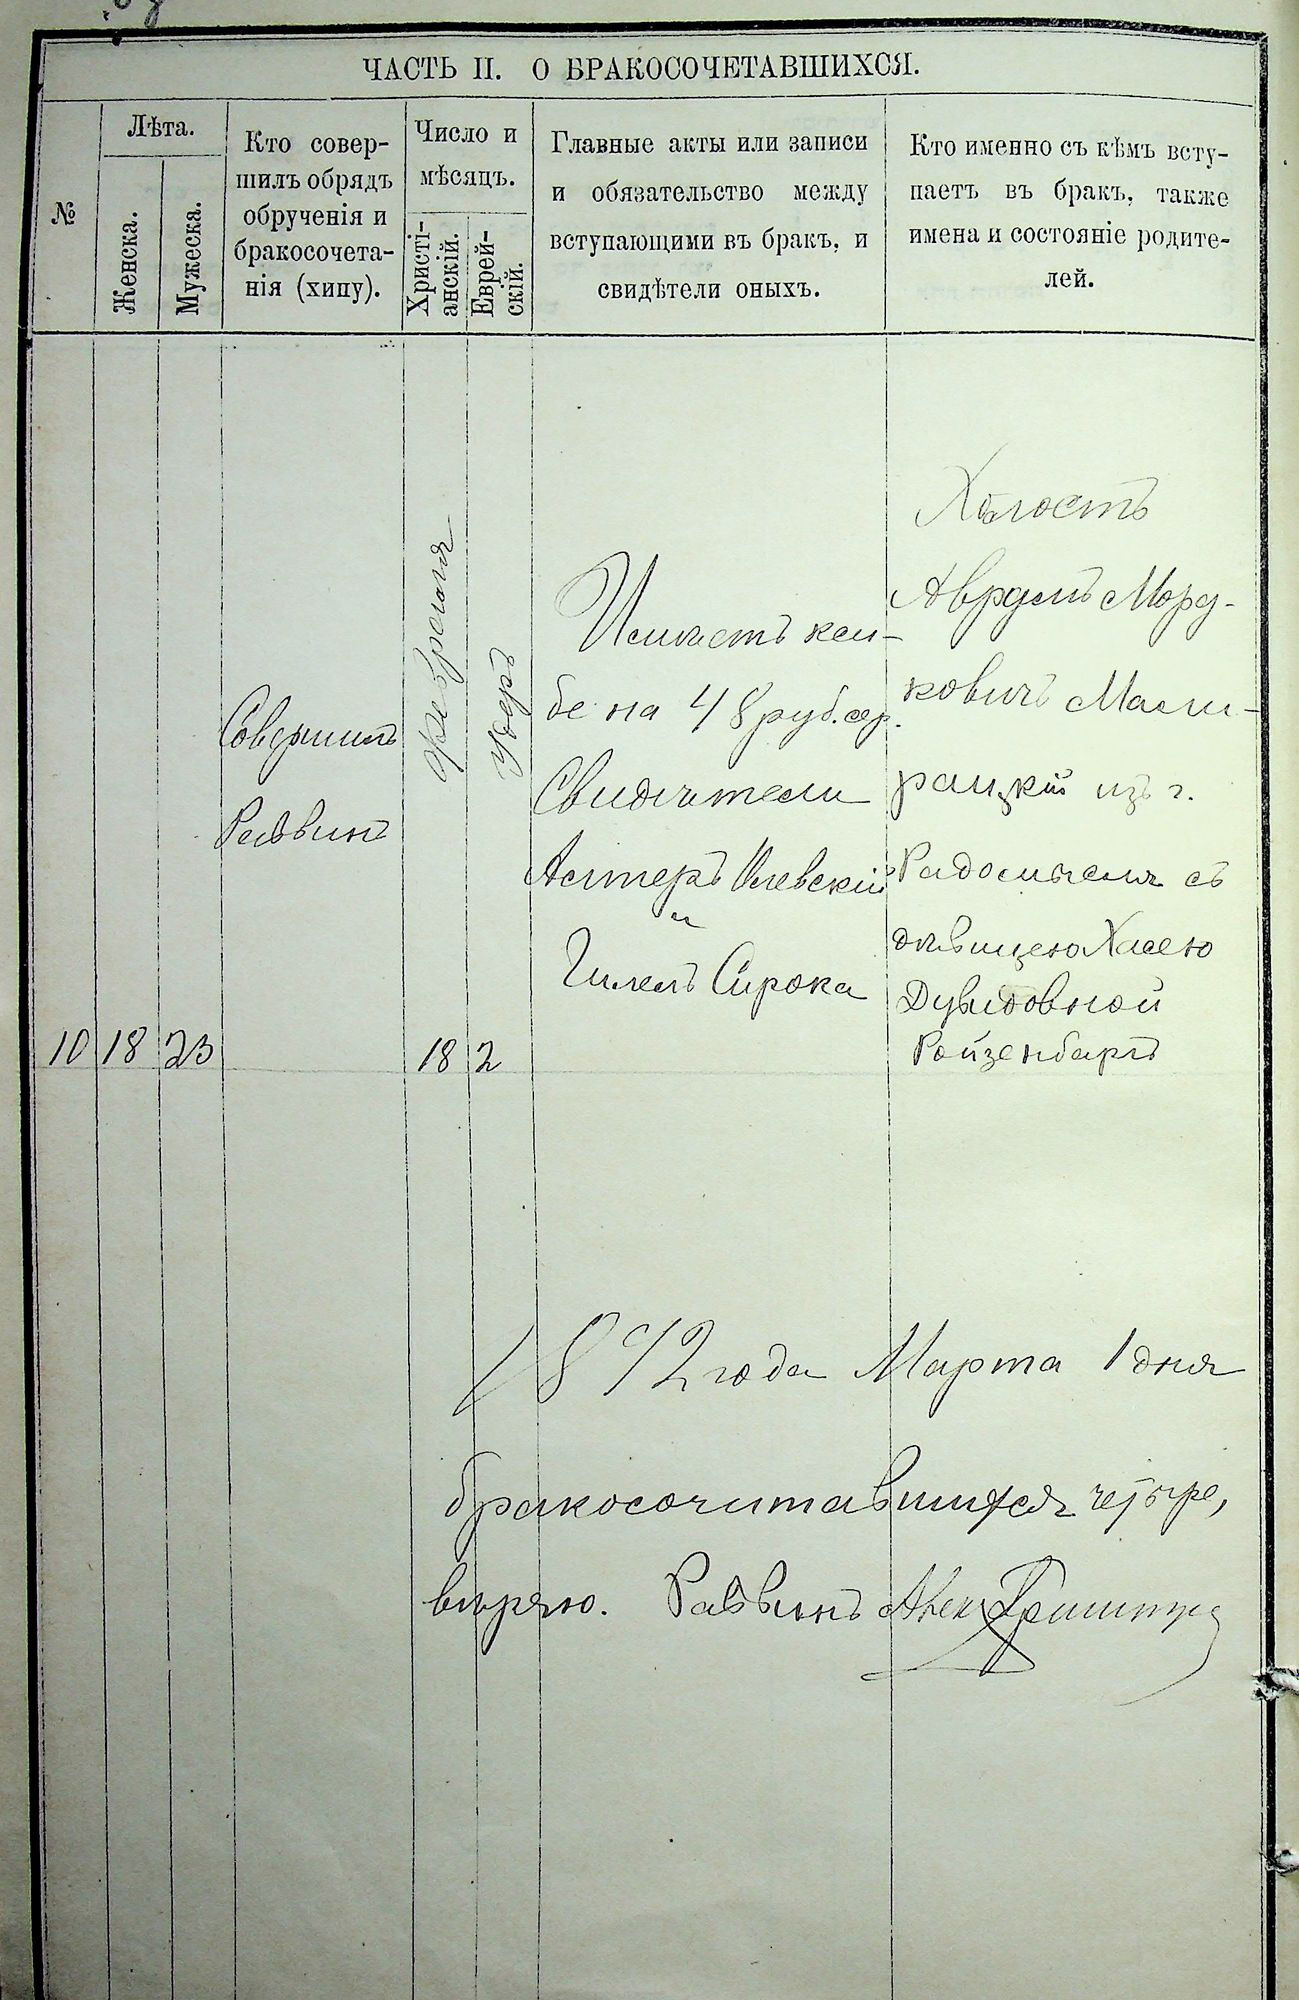 ЧАСТЬ II. О БРАКОСОЧЕТАВШИХСЯ.
№
Лѣта.
Женска.
Мужеска.
Кто совер-
шилъ обрядъ
обрученія и
бракосочета-
нія (хипу).
Число и
мѣсяцъ.
Христі-
анскій.
Еврей-
скій.
Главные акты или записи
и обязательство между
вступающими въ бракъ, и
свидѣтели оныхъ.
Кто именно съ кѣмъ всту-
паетъ въ бракъ, также
имена и состояніе родите-
лей.
10
18
23
Совершилъ
Раввинъ
Февраля
18
Удеръ
2
на 48 руб. сер.
Свидѣтели
и
Гилель Сирока
Холостъ
Аврумъ Морд-
ковичъ
изъ г.
Радомысля съ
дѣвицею Хасею
Дувидовной
Ройзенбаргъ
1892 года Марта 1 дня
бракосочитавшихся четыре,
вѣряю. Раввинъ